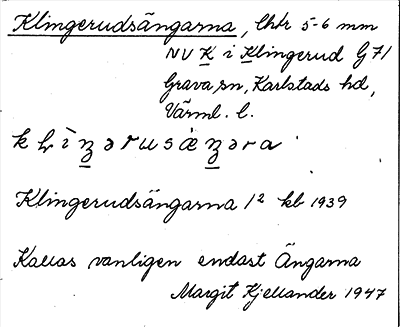 Klingerudsängarna, lhtr 5-6 mm
NV K i Klingerud G 71
Grava sn, Karlstads hd,
Värml. l.
Klingerudsängarna 1² kb 1939
Kallas vanligen endast Ängarna
Margit Kjellander 1947